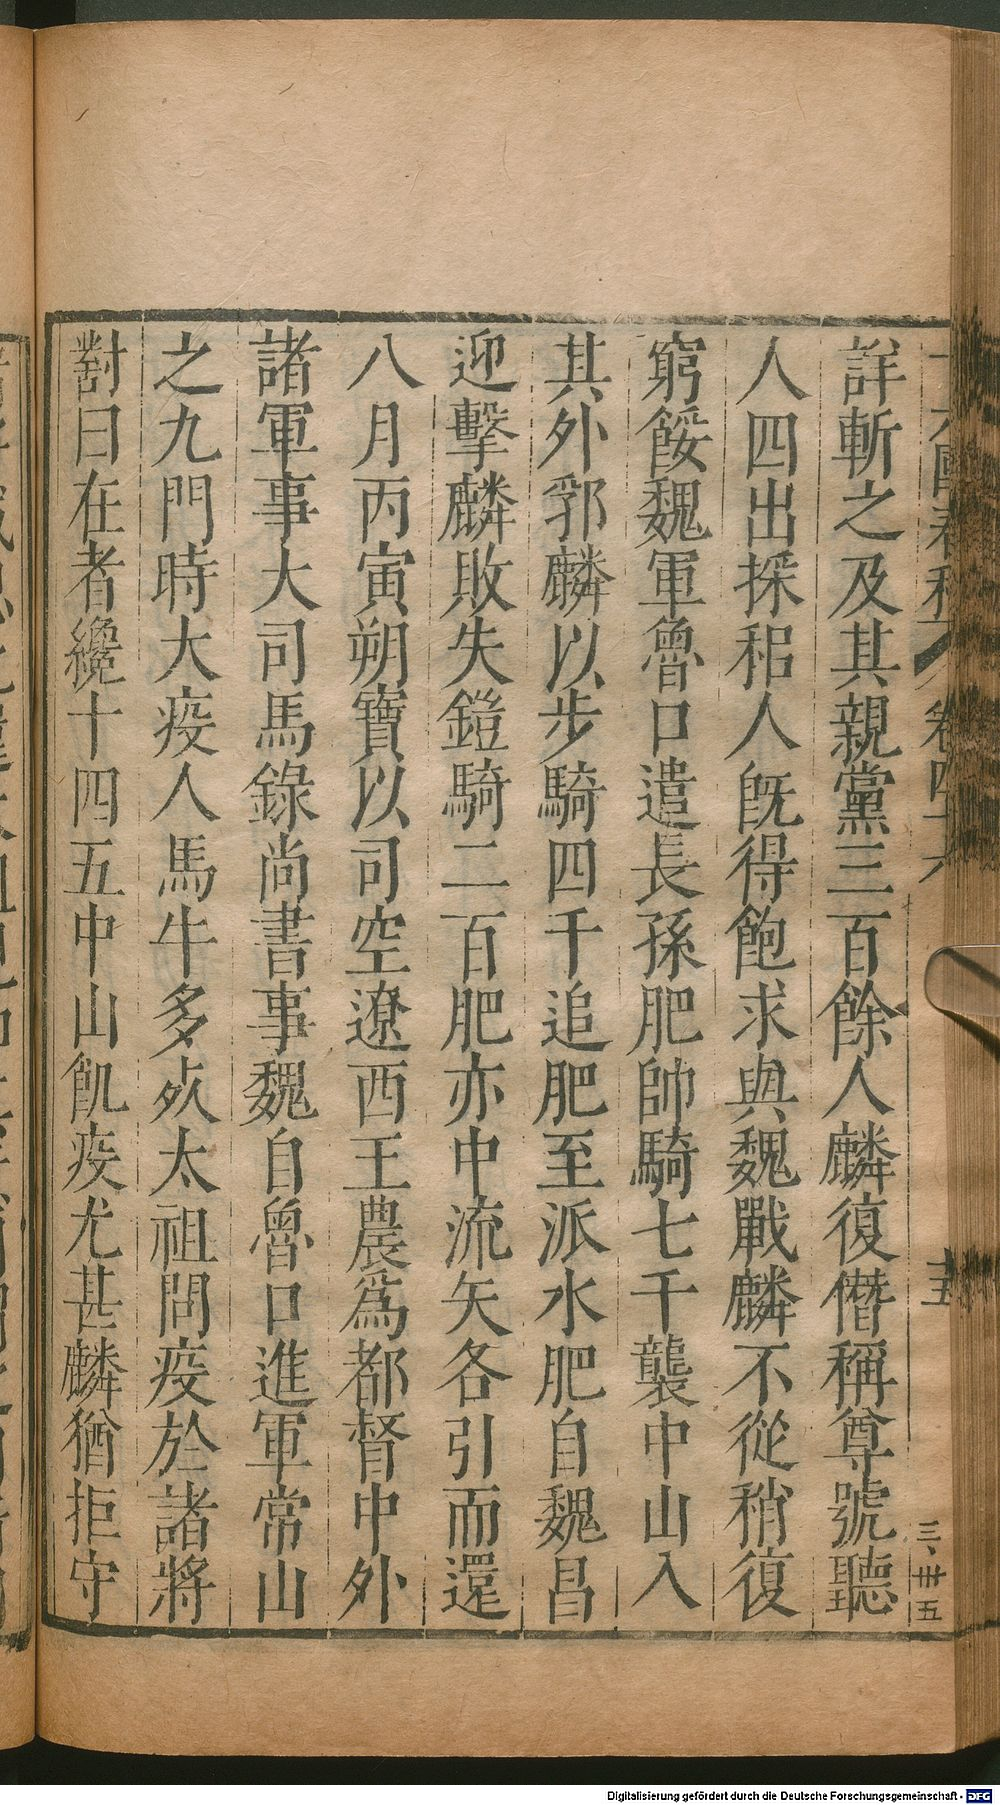 詳斬之及其親黨三百餘人麟復僭稱尊號聽
人四出採稆人旣得飽求與魏戰麟不從稍復
窮餒魏軍魯口遣長孫肥帥騎七千襲中山入
其外郛麟以步騎四千追肥至派水肥自魏昌
迎擊麟敗失鎧騎二百肥亦中流矢各引而還
八月丙寅朔寶以司空遼西王農爲都督中外
諸軍事大司馬錄尚書事魏自魯口進軍常山
之九門時大疫人馬牛多死太祖問疫於諸將
對曰在者纔十四五中山飢疫尤甚麟猶拒守
Digitalisierung gefördert durch die Deutsche Forschungsgemeinschaft - DFG